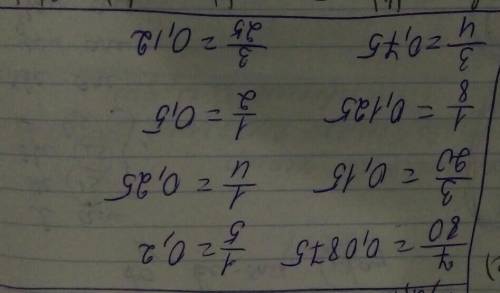 7/80 = 0,0875 1/5 = 0,2
3/20 = 0,15 1/4 = 0,25
1/8 = 0,125 1/2 = 0,5
3/4 = 0,75 3/25 = 0,12